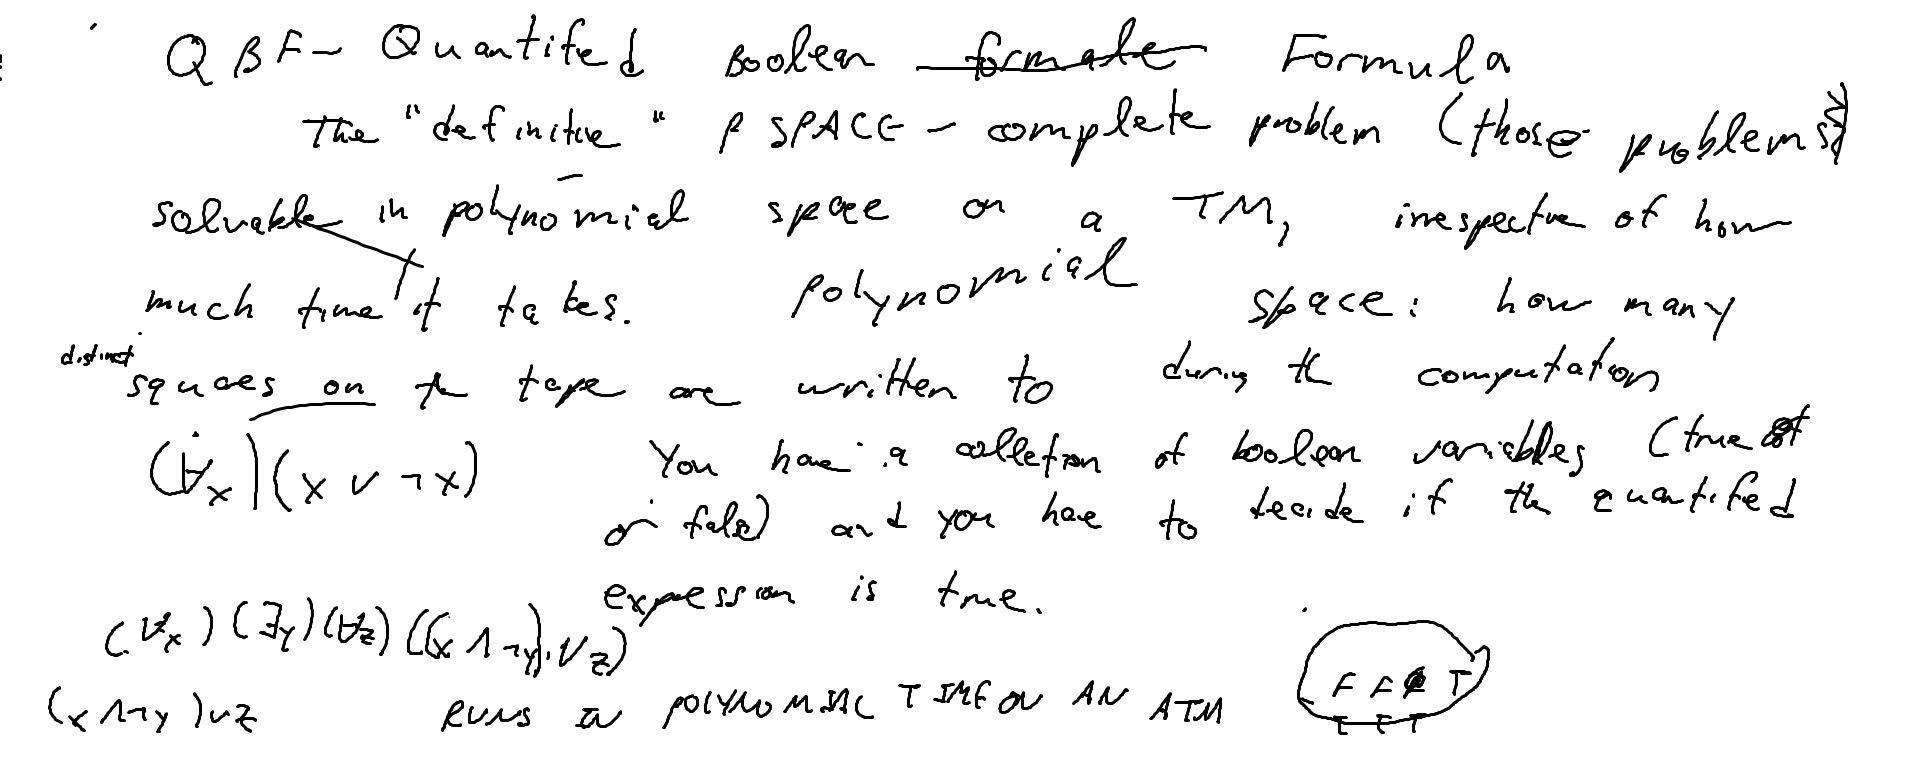 QBF - Quantifed Boolean formate Formula
The "definitive" PSPACE - complete problem (those problems
solvable in polynomial space on a TM, irrespective of how
much time it takes. polynomial space: how many
distinct squares on the tape are written to during the computation
(∀x)(x ∨ ¬x) You have a colletion of boolean variables (true
or false) and you have to decide if the quantifed
expression is true.
(∀x)(∃y)(∀z)((x ∧ ¬y) ∨ z)
(x ∧ ¬y) ∨ z RUNS IN POLYNOMIAL TIME ON AN ATM F F T